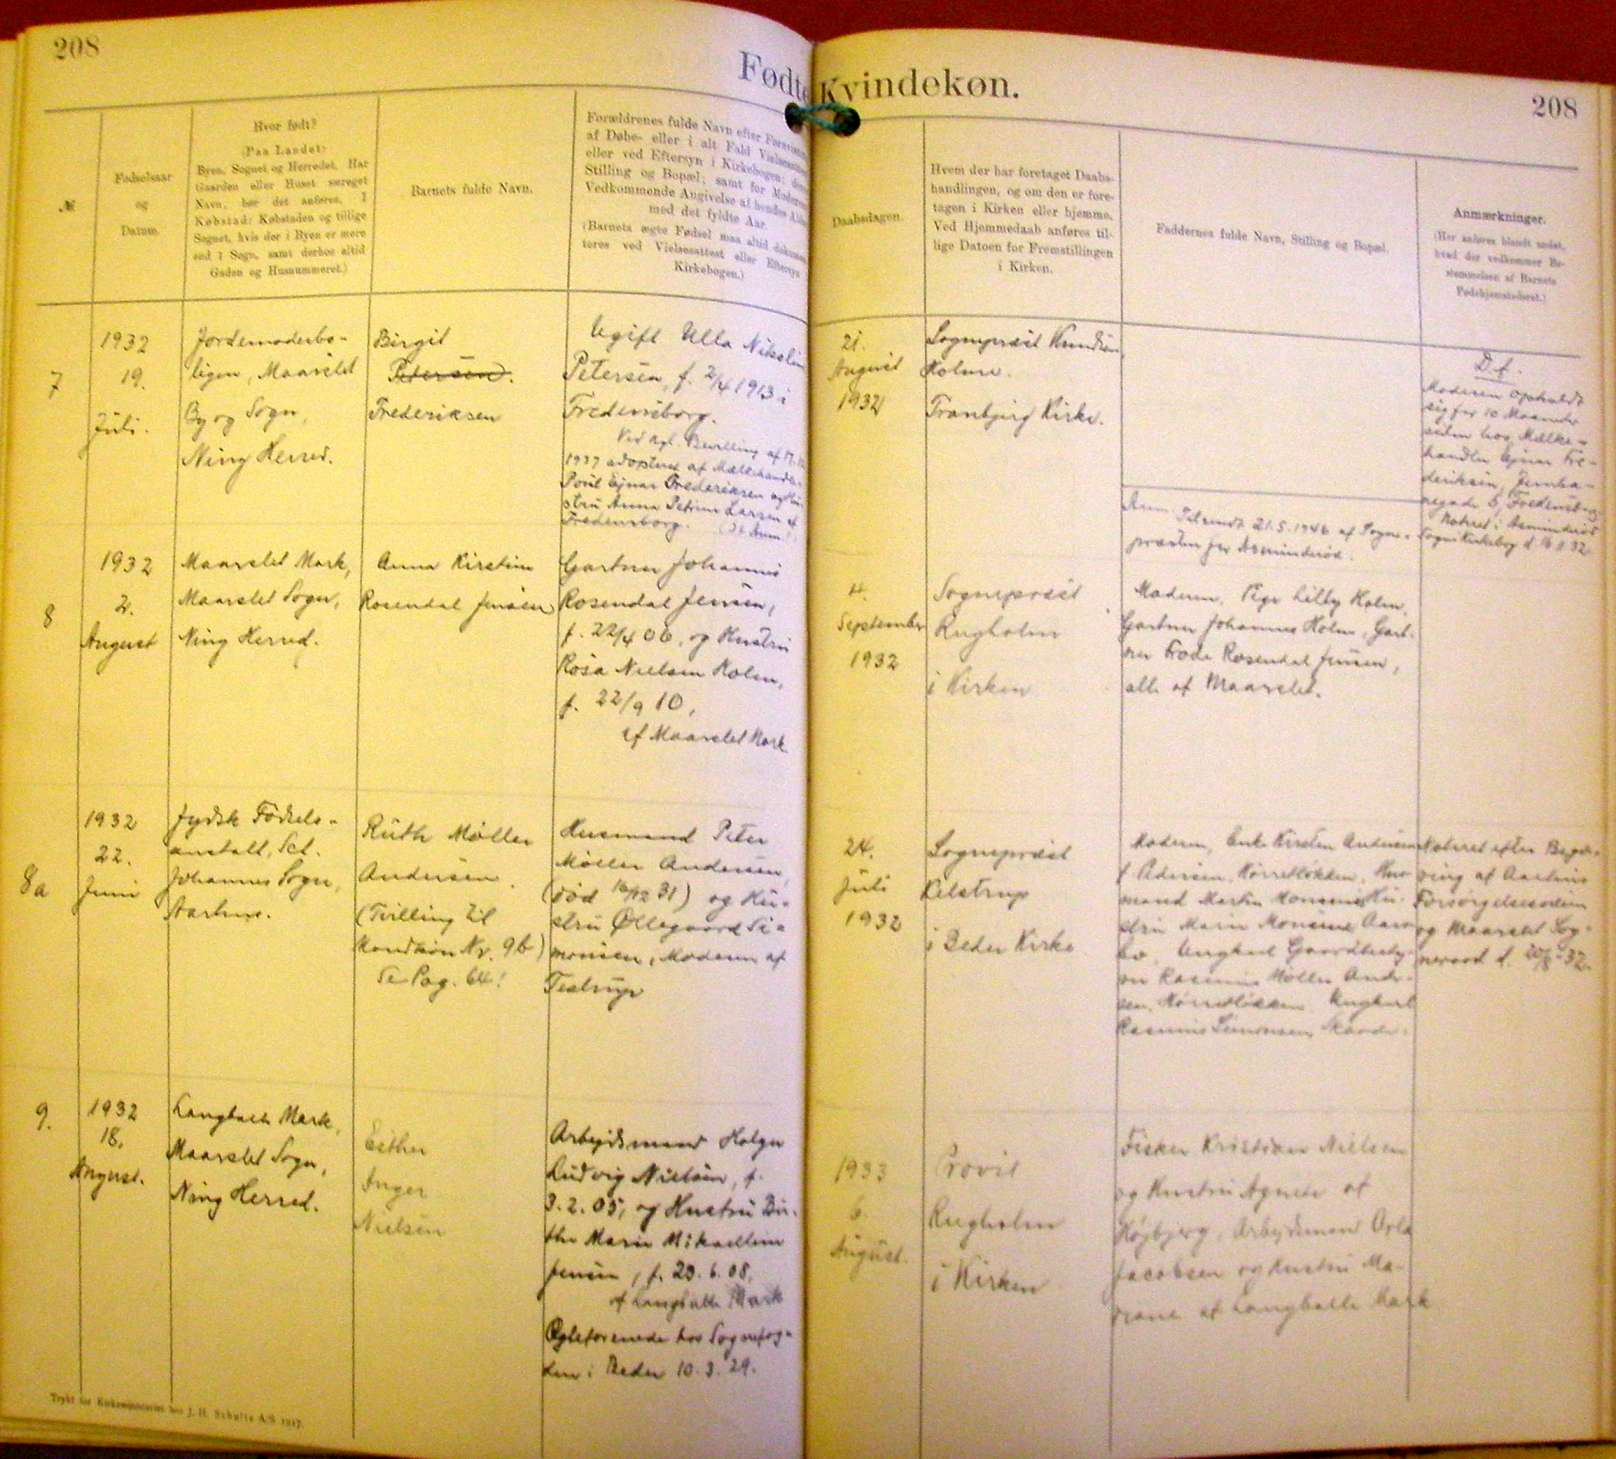 208
Fødte
Kvindekøn.
208
№
Fødselsaar
og
Datum.
Hvor født?
(Paa Landet:
Byen, Sognet og Herredet. Har
Gaarden eller Huset særeget
Navn, bør det anføres. I
Købstad: Købstaden og tillige
Sognet, hvis der i Byen er mere
end 1 Sogn, samt derhos altid
Gaden og Husnummeret.)
Barnets fulde Navn.
Forældrenes fulde Navn efter
af Døbe- eller i alt Fald
eller ved Eftersyn i Kirkebogen;
Stilling og Bopæl; samt for
Vedkommende Angivelse af hendes
med det fyldte Aar.
(Barnets ægte Fødsel maa altid
teres ved Vielsesattest eller Eftersyn
Kirkebogen.)
Daabsdagen.
Hvem der har foretaget Daabs-
handlingen, og om den er fore-
tagen i Kirken eller hjemme.
Ved Hjemmedaab anføres til-
lige Datoen for Fremstillingen
i Kirken.
Faddernes fulde Navn, Stilling og Bopæl.
Anmærkninger.
(Her anføres blandt andet,
hvad der vedkommer Be-
stemmelsen af Barnets
Fødehjemstedsret.)
7
1932
19.
Juli.
Jordemoderbo-
ligen, Maarslet
By og Sogn,
Ning Herred.
Birgit
Petersen.
Frederiksen
Ugift Ulla
Petersen, f. 2/4 1913 i
Fredensborg.
Ved kgl. Bevilling af
1937 adopteret af Mælkehandler
Poul Ejnar Frederiksen og Hu-
stru Anna Petrine Larsen af
Fredensborg.
21.
August
1932
Sognepræst Knudsen
Holme.
Tranbjerg Kirke.
Anm. Tilsendt 21.5.1946 af Sogne-
præsten for Asminderød.
D.f.
Moderen opholdt
sig for 10 Maaneder
siden hos Mælke-
handler Ejnar Fre-
deriksen, Jernba-
negade 5, Fredensborg.
Noteret i Asminderød
Sogns Kirkebog d.
8
1932
2.
August
Maarslet Mark,
Maarslet Sogn,
Ning Herred.
Anna Kirstine
Rosendal Jensen
Gartner Johannes
Rosendal Jensen,
f. 22/4 06, og Hustru
Rosa Nielsen Holm,
f. 22/9 10,
af Maarslet Mark.
4.
September
1932
Sognepræst
Rugholm
i Kirken
Moderen, Pige Lilly Holm,
Gartner Johannes Holm, Gart-
ner Frode Rosendal Jensen,
alle af Maarslet.
8a
1932
22.
Juni
Jydsk Fødsels-
anstalt, Sct.
Johannes Sogn,
Aarhus.
Ruth Møller
Andersen.
(Tvilling til
Mandkøn Nr. 9b)
Se Pag. 64!
Husmand Peter
Møller Andersen,
(død 16/12 31) og Hu-
stru Øllegaard Si-
monsen, Moderen af
Testrup
24.
Juli
1932
Sognepræst
Kelstrup
i Beder Kirke
Moderen, Enke Kirsten Andersen
f. Pedersen, Nørreløkken, Hus-
mand Martin Monsen, Hu-
stru Marie Monsen, Aars-
lev, Ungkarl Gaardbesty-
rer Rasmus Møller Ander-
sen, Nørreløkken, Ungkarl
Rasmus Simonsen, Skaade.
Noteret efter Begæ-
ring af Aarhus
Forsørgelsesvæsen
og Maarslet Sog-
neraad d. 20/8-32.
9.
1932
18.
August.
Langballe Mark,
Maarslet Sogn,
Ning Herred.
Esther
Inger
Nielsen
Arbejdsmand Holger
Ludvig Nielsen, f.
3.2.05, og Hustru Bir-
the Marie Mikaelline
Jensen, f. 23.6.08,
af Langballe Mark
Ægteforenede hos Sognefog-
den i Beder 10.3.29.
1933
6.
August.
Provst
Rugholm
i Kirken
Fisker Kristian Nielsen
og Hustru Agnete af
Højbjerg, Arbejdsmand Orla
Jacobsen og Hustru Ma-
riane af Langballe Mark
Trykt for Kirkeministeriet hos J. H. Schultz A/S 1917.